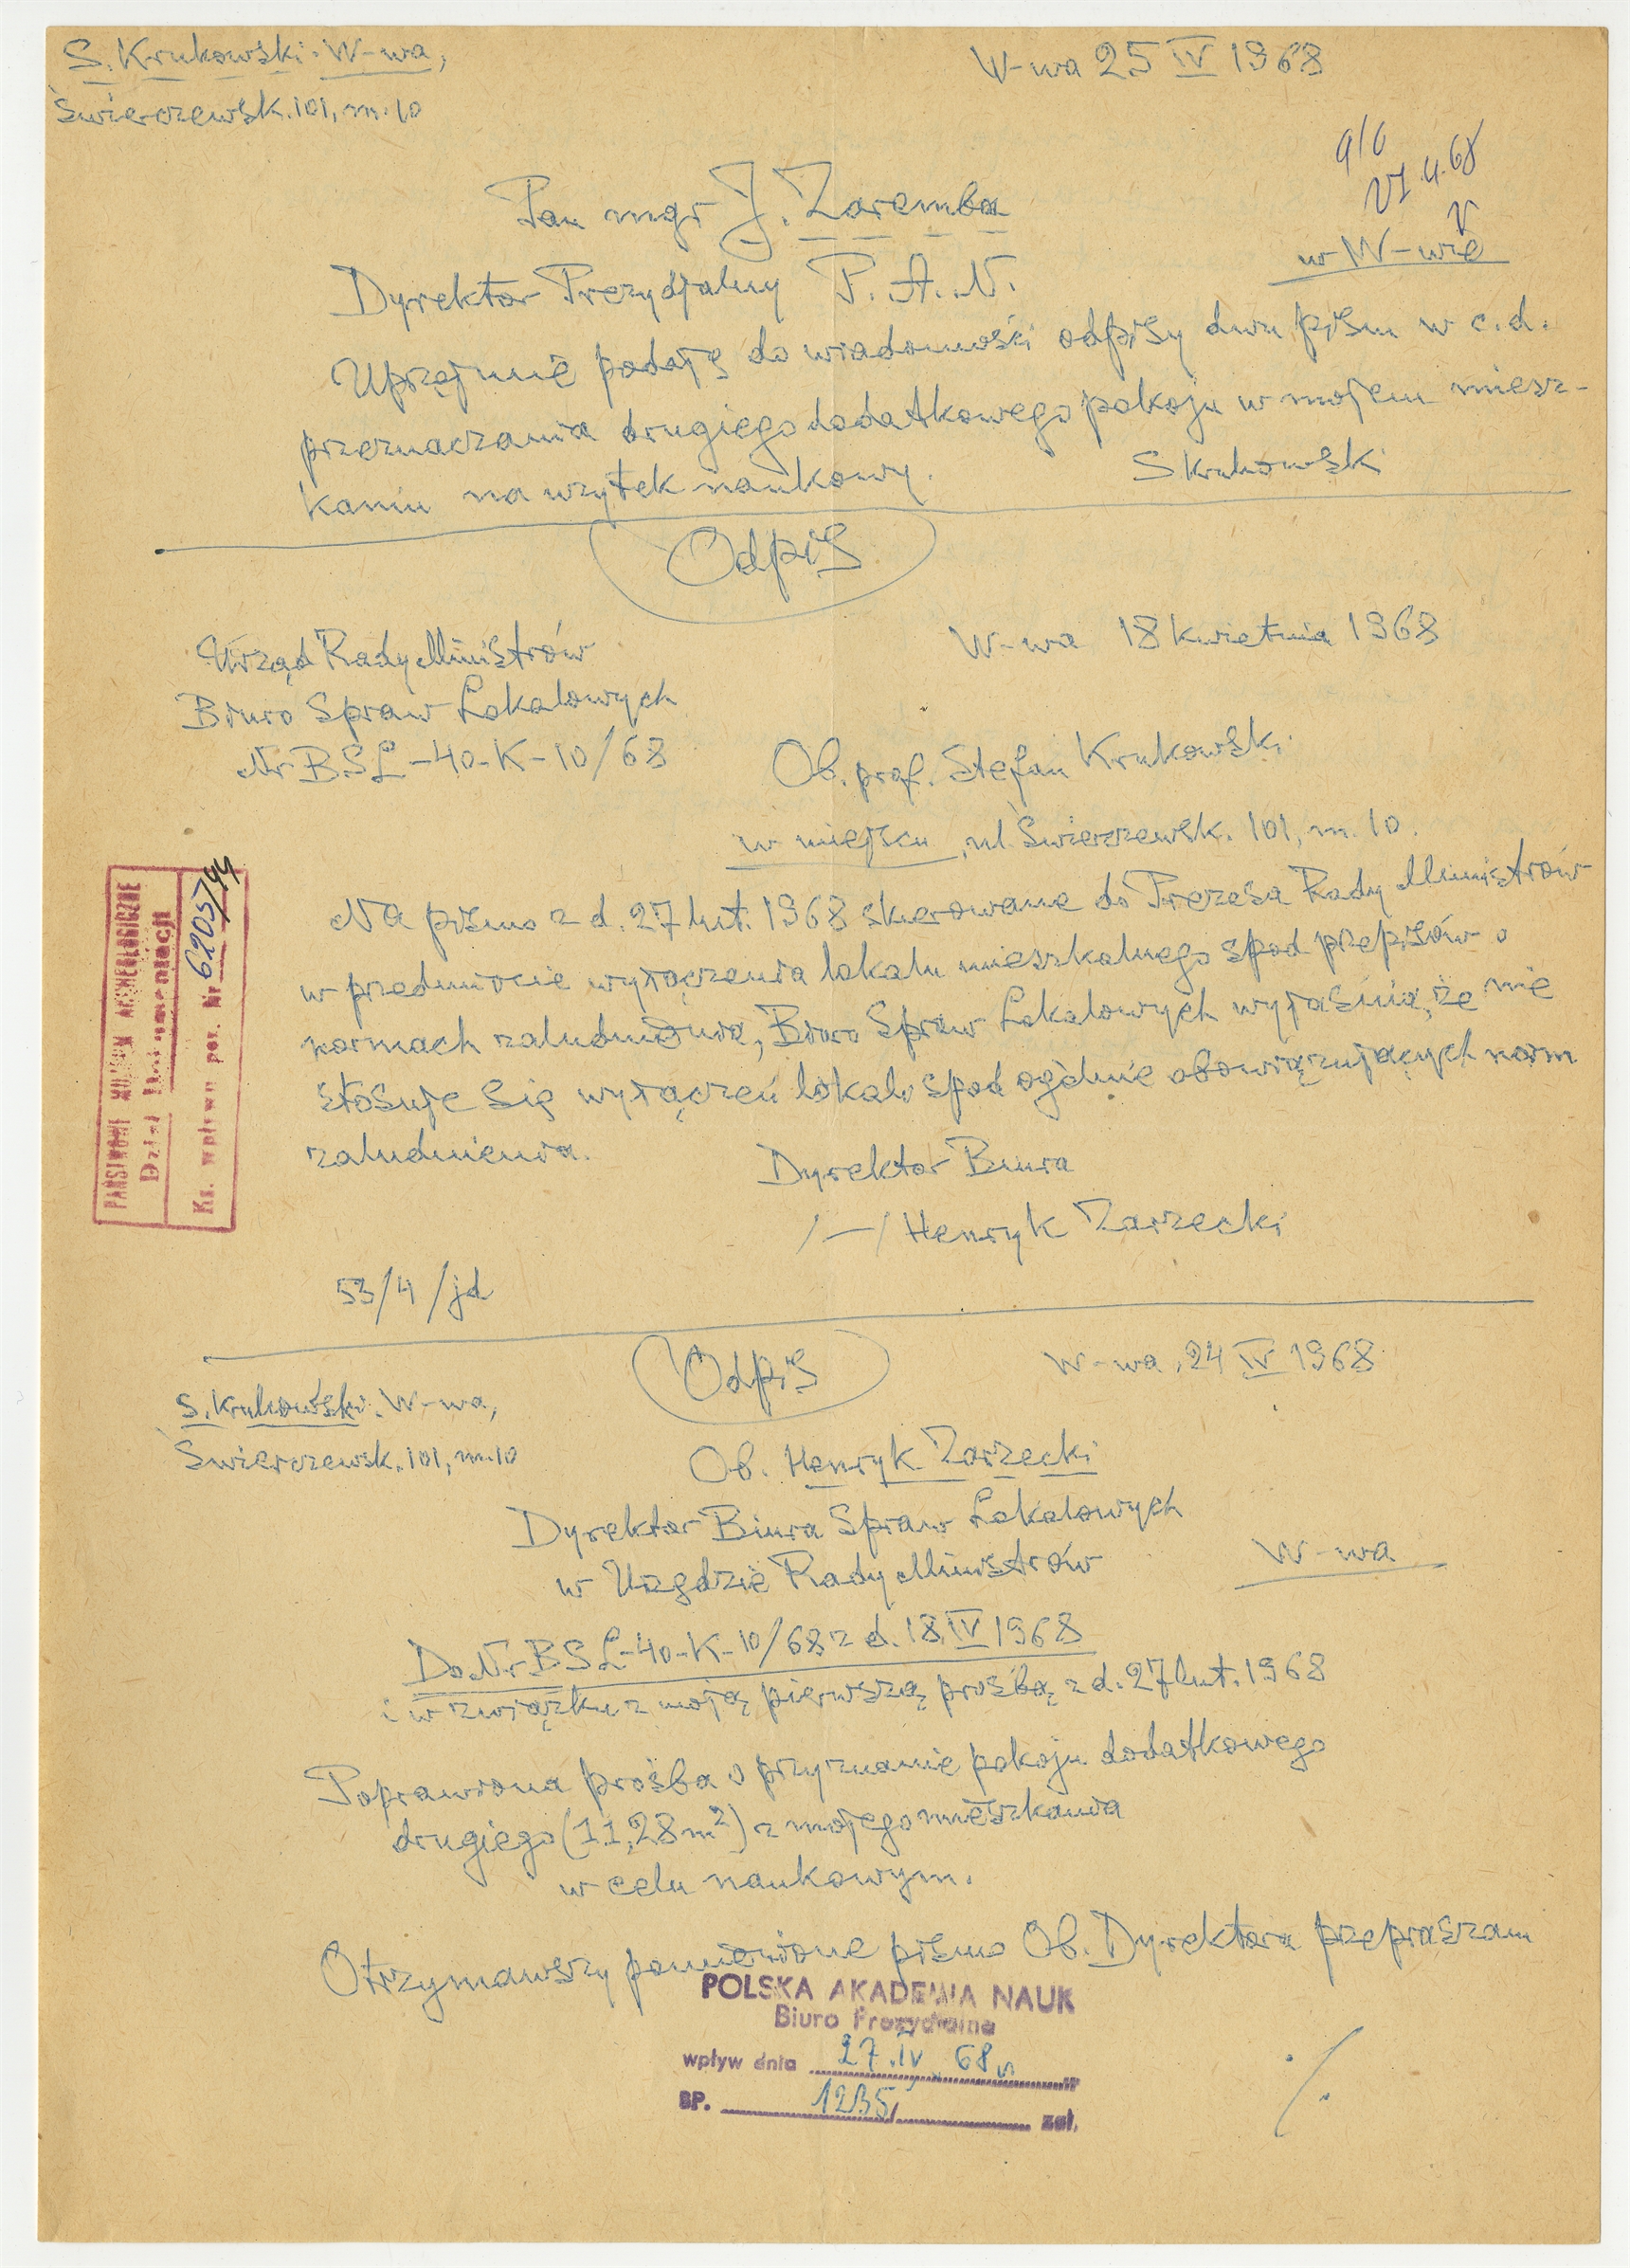 S. Krukowski: W-wa,
Świerczewsk. 101, m. 10
W-wa 25 IV 1968
27.4.68
Pan mgr J. Zaremba
Dyrektor Prezydjalny P. A. N.
w W-wie
Uprzejmie podaję do wiadomości odpisy dwu pism w c. d.
przeznaczania drugiego dodatkowego pokoju w mojem miesz-
kaniu na użytek naukowy.
S Krukowski
Odpis
W-wa 18 kwietnia 1968
Urząd Rady Ministrów
Biuro Spraw Lokalowych
Nr BSL-40-K-10/68
Ob. prof. Stefan Krukowski
w miejscu, ul. Świerczewsk. 101, m. 10.
Na pismo z d. 27 lut. 1968 skierowane do Prezesa Rady Ministrów
w przedmiocie wyłączenia lokalu mieszkalnego spod przepisów o
normach zaludnienia, Biuro Spraw Lokalowych wyjaśnia, że nie
stosuje się wyłączeń lokali spod ogólnie obowiązujących norm
zaludnienia.
Dyrektor Biura
/—/ Henryk Zarzecki
53/4/jd
PAŃSTWOWE MUZEUM ARCHEOLOGICZNE
Dział Dokumentacji
Ks. wpływu poz. Nr 6205/94
Odpis
W-wa, 24 IV 1968
S. Krukowski: W-wa,
Świerczewsk. 101, m. 10
Ob. Henryk Zarzecki
Dyrektor Biura Spraw Lokalowych
w Urzędzie Rady Ministrów
W-wa
Do Nr BSL-40-K-10/68 z d. 18 IV 1968
i w związku z moją pierwszą prośbą z d. 27 lut. 1968
Poprawiona prośba o przyznanie pokoju dodatkowego
drugiego (11,28 m²) z mojego mieszkania
w celu naukowym.
Otrzymawszy pomienione pismo Ob. Dyrektora przepraszam
POLSKA AKADEMIA NAUK
Biuro Prezydialne
wpływ dnia 27. IV. 68 r.
BP. 1235/ zał.
./.